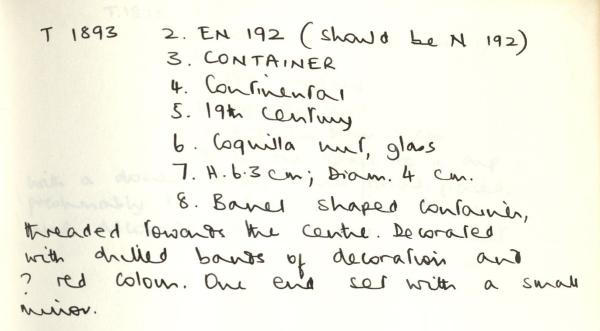 T 1893 2. EN 192 (should be N 192)
3. CONTAINER
4. Continental
5. 19th Century
6. Coquilla nut, glass
7. H. 6.3 cm; Diam. 4 cm.
8. Barrel shaped container,
threaded towards the centre. Decorated
with drilled bands of decoration and
? red colour. One end set with a small
mirror.